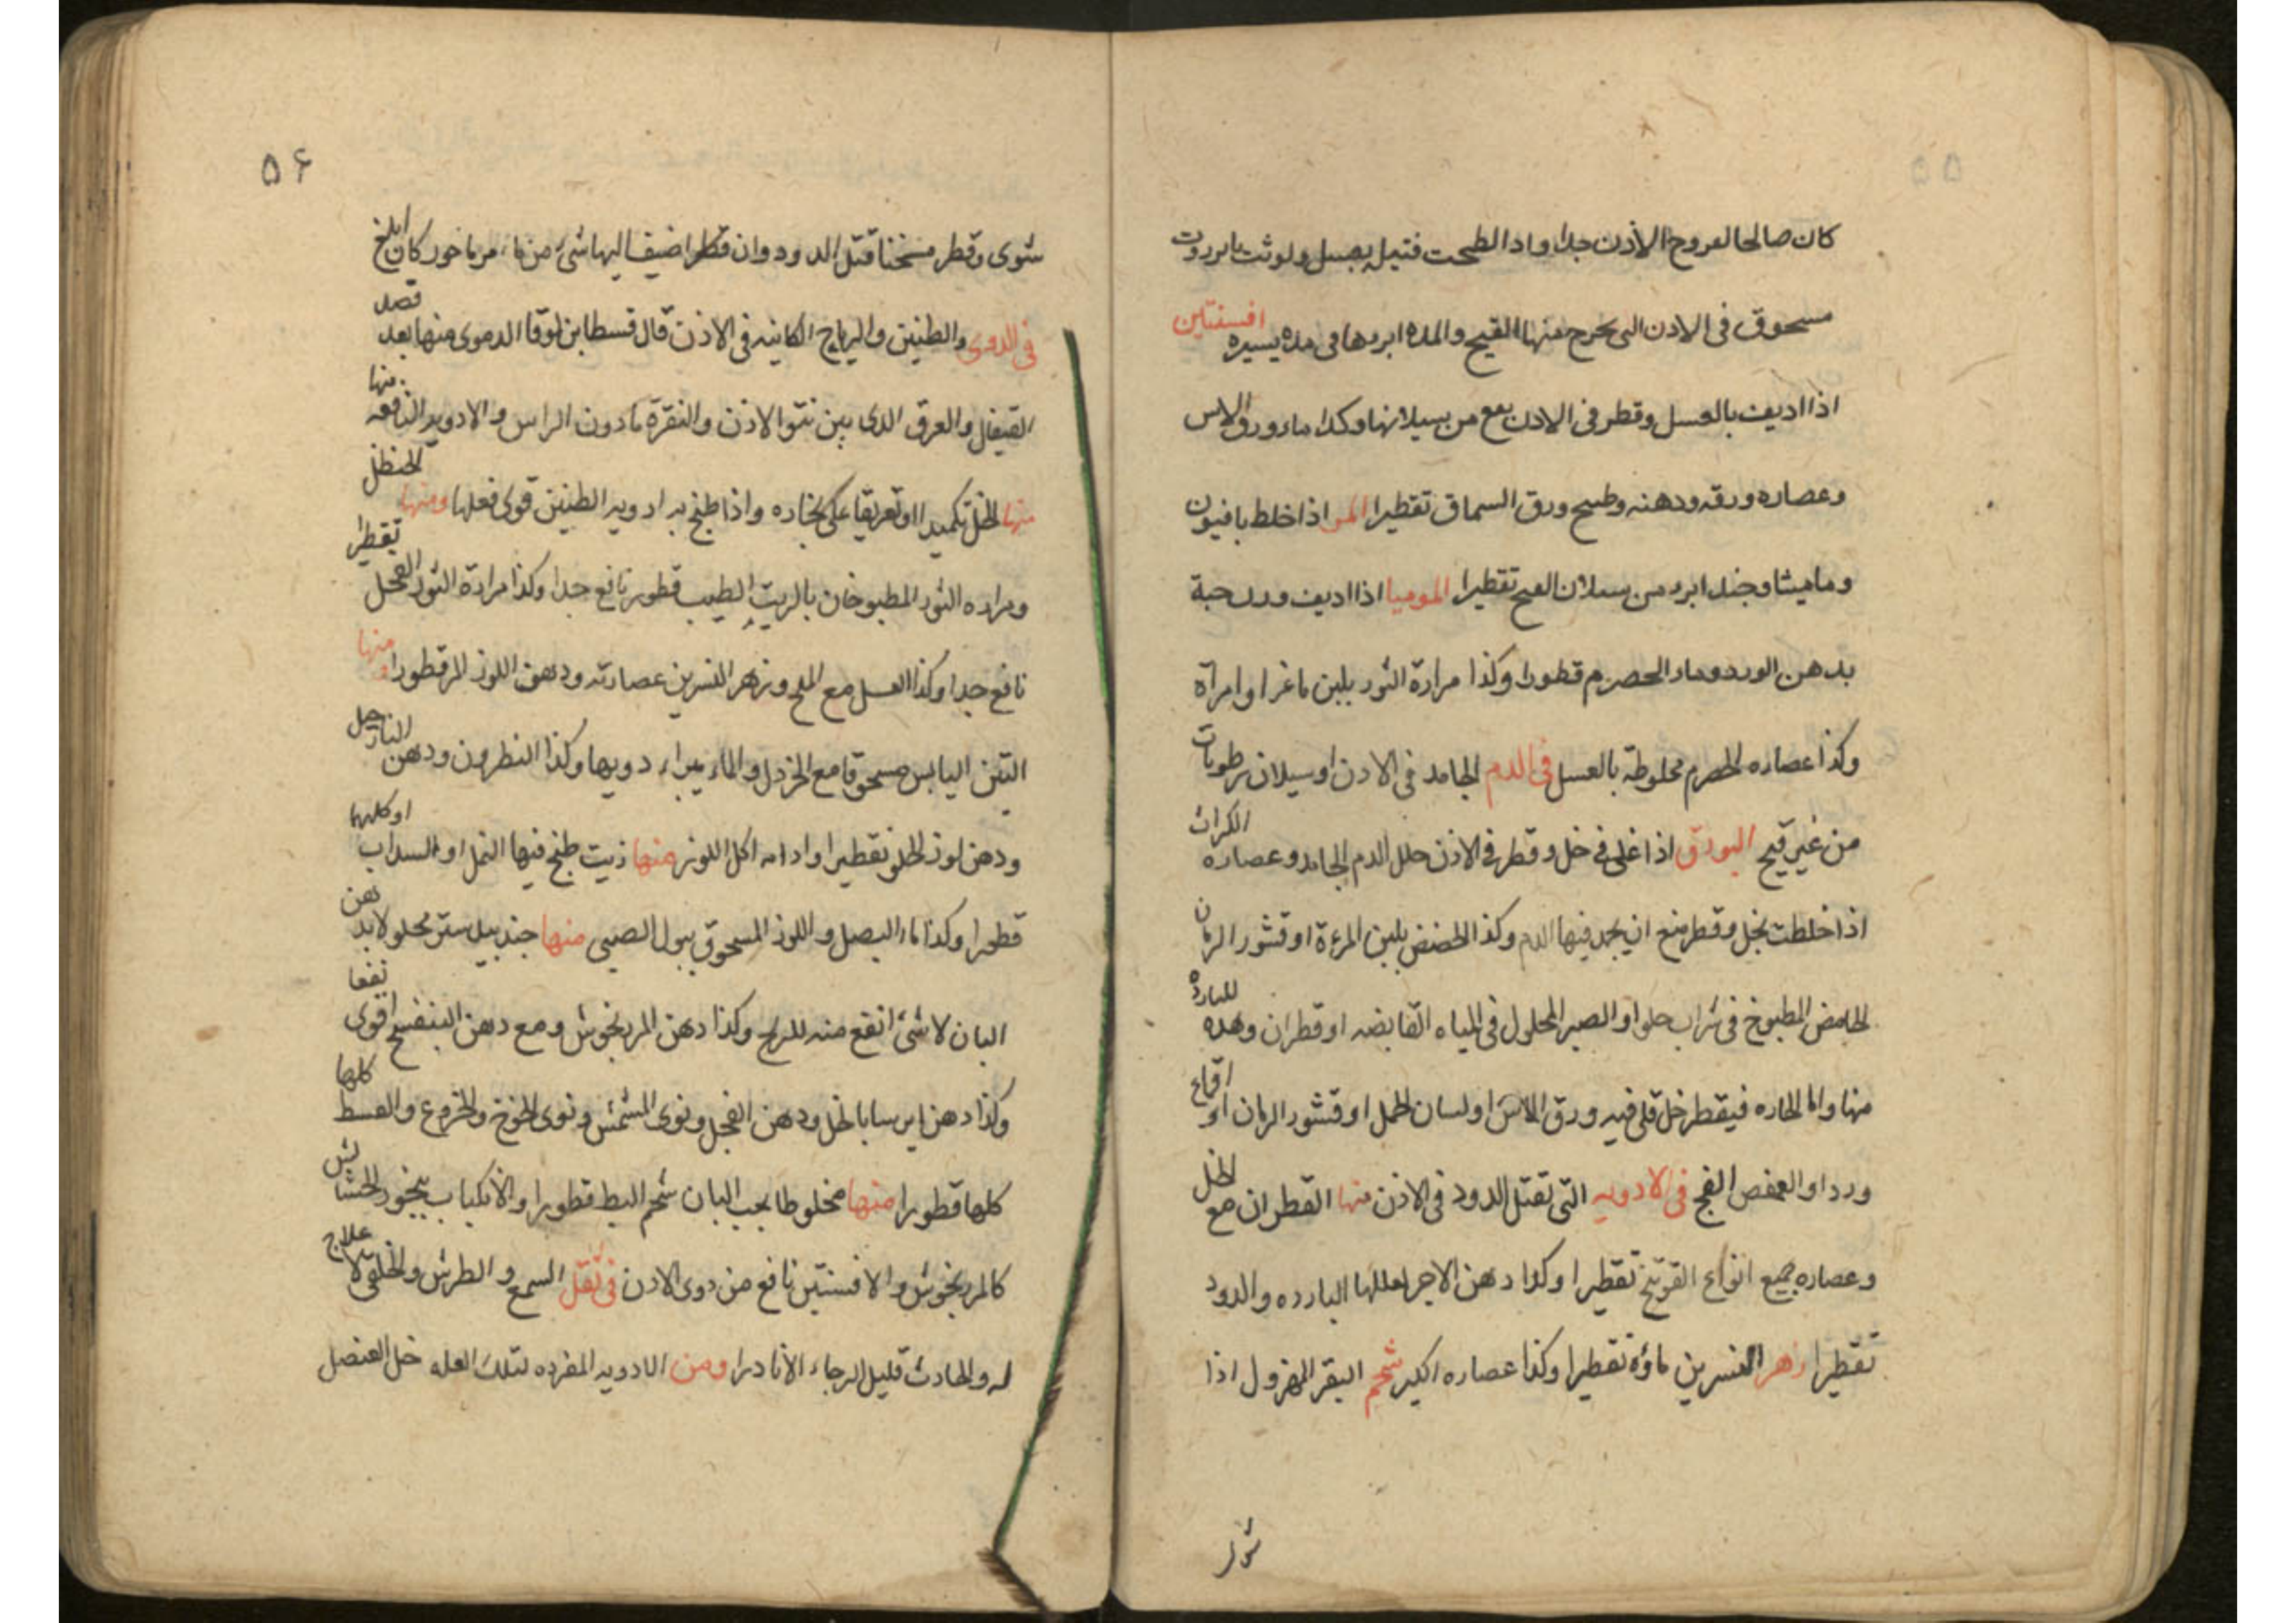 ۵۵
كان صالحا لعروح الاذن جدا واذا لطحت فتيله بعسل ولوثت بانزروت
مسحوق فى الاذن التى يخرج منها القيح والمده ابروها فى مدة يسيره افسنتين
اذا اديف بالعسل وقطر فى الاذن نفع من سيلانها وكذا ماء ورق الاس
وعصاره ورقه ودهنه وطبيخ ورق السماق تقطيرا المر اذا خلط بافيون
وماميثا وجند ابرء من سيلان القيح تقطيرا الموميا اذا اديف وزن حبة
بدهن الورد وماء الحصرم قطورا وكذا مرارة الثور بلبن ماغرا وامرآة
وكذا عصاره الحصرم مخلوطة بالعسل فى الدم الجامد فى الاذن او سيلان رطوبات
من غير قيح البورق اذا غلى فى خل وقطر فى الاذن حلل الدم الجامد وعصاره الكراث
اذا خلطت بخل وقطر منع ان يجمد فيها الدم وكذا الحضض بلبن المرءة او قشور الرمان
الحامض المطبوخ فى شراب حلو او الصبر المحلول فى المياه القابضه او قطران وهذه للباردة
منها واما الحاره فيقطر خل قلى فيه ورق الاس او لسان الحمل او قشور الرمان او اقماع
ورد او العفص الفج فى الادويه التى تقتل الدود فى الاذن منها القطران مع الخل
وعصاره جميع انواع الفوتنج تقطيرا وكذا دهن الاجر لعللها البارده والدود
تقطيرا زهر النسرين ماؤه تقطيرا وكذا عصاره اكبر شحم البقر المهزول اذا
شوى
۵۶
شوى وقطر مسخنا قتل الدود وان قطرا ضيف اليها شئ من ماء مرماخور كان ابلغ
فى الدوى والطنين والرياح الكاينه فى الاذن قال قسطا بن لوقا الدموى منها بعد فصد
القيفال والعرق الذى بين نتو الاذن والنقرة مادون الراس والادويه النافعه منها
منها الخل تكميدا او تعريقا على بخاره واذا طبخ به ادويه الطنين قوى فعلها ومنها الحنظل
ومراره الثور المطبوخان بالزيت الطيب قطور نافع جدا وكذا مرارة الثور الفحل تقطرا
نافع جدا وكذا العسل مع الملح وزهر النسرين عصارته ودهن اللوز المر قطورا ومنها
التين اليابس مسحوقا مع الخردل والماء يبراء دويها وكذا النطرون ودهن النارجل
ودهن لوز الحلو تقطيرا وادامه اكل اللوز منها زيت طبخ فيها النمل او السداب او كلهما
قطورا وكذا ماء البصل واللوز المسحوق ببول الصبى منها جندبيدستر محلولا بدهن
البان لا شئ انفع منه للريح وكذا دهن المرزنجوش ومع دهن البنفسج اقوى نفعا
وكذا دهن ايرسا بالخل ودهن الفجل ونوى المشمش ونوى الخوخ والخروع والقسط كلها
كلها قطورا منها مخلوطا بحب البان شحم البط قطورا والانكباب ببخور الحشائش
كالمرزنجوش والافسنتين نافع من دوى الاذن فى ثقل السمع والطرش والخلقى لا علاج
له والحادث قليل الرجاء الا نادرا ومن الادويه المفرده لتلك العله خل العنصل